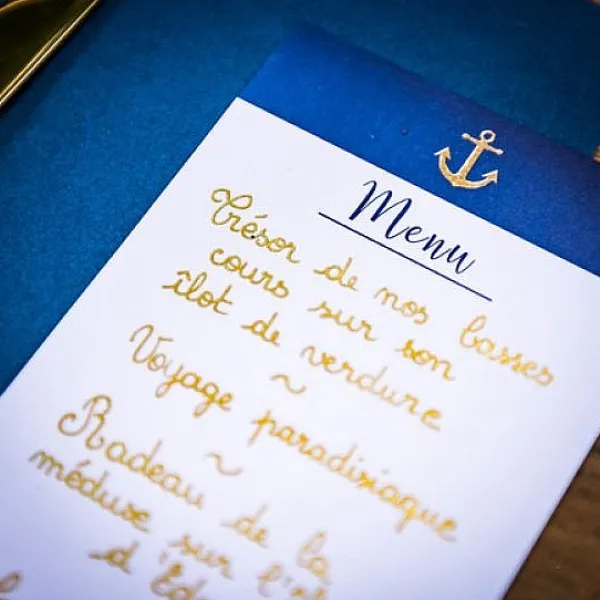 Menu
Trésor de nos basses
cours sur son
îlot de verdure
~
Voyage paradisiaque
~
Radeau de la
méduse sur l'
d'Ed